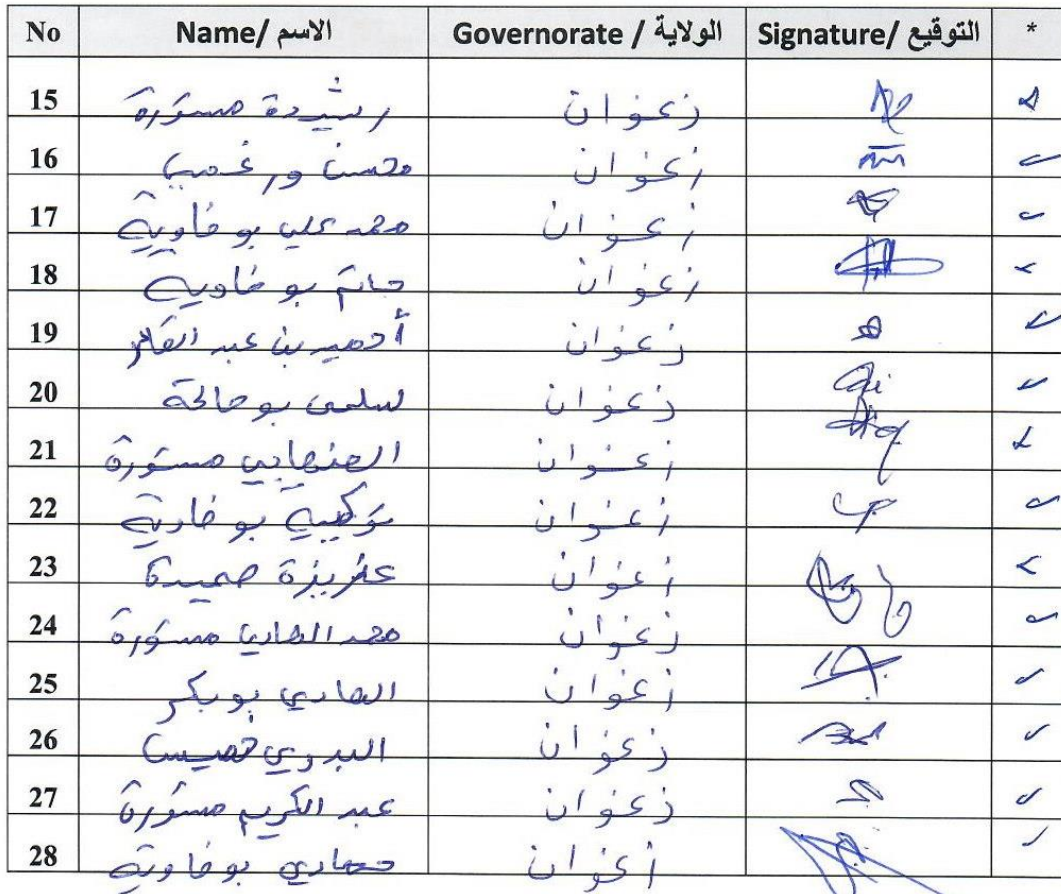 No الاسم /Name الولاية / Governorate التوقيع /Signature *
15 رشيدة مستورة زغوان
16 محسن ورغمي زغوان
17 محمد علي بوخاوية زغوان
18 حاتم بوخاوية زغوان
19 أحميد بن عبد القادر زغوان
20 سلمى بوحالة زغوان
21 مستورة زغوان
22 بوخاوية زغوان
23 عزيزة حميدة زغوان
24 محمد الهادي مستورة زغوان
25 الهادي بوبكر زغوان
26 البدوي خميس زغوان
27 عبد الكريم مستورة زغوان
28 حمادي بوخاوية زغوان